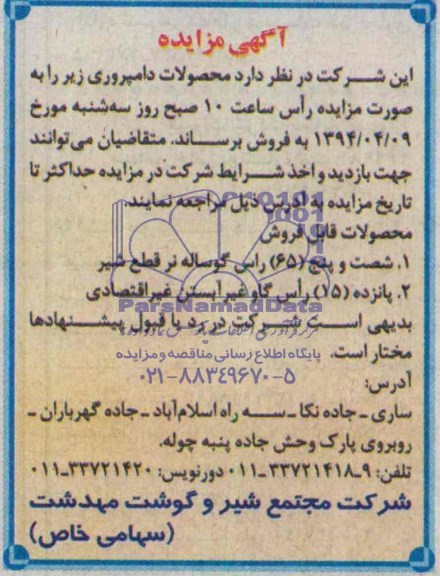 آگهی مزایده
این شرکت در نظر دارد محصولات دامپروری زیر را به
صورت مزایده رأس ساعت ۱۰ صبح روز سه‌شنبه مورخ
۱۳۹۴/۰۴/۰۹ به فروش برساند. متقاضیان می‌توانند
جهت بازدید و اخذ شرایط شرکت در مزایده حداکثر تا
تاریخ مزایده به آدرس ذیل مراجعه نمایند.
محصولات قابل فروش
۱. شصت و پنج (۶۵) راس گوساله نر قطع شیر
۲. پانزده (۱۵) رأس گاو غیر آبستن غیراقتصادی
ParsNamadData
بدیهی است شرکت در رد یا قبول پیشنهادها
مختار است.
پایگاه اطلاع رسانی مناقصه و مزایده
۰۲۱-۸۸۳۴۹۶۷۰-۵
آدرس:
ساری ـ جاده نکا ـ سه راه اسلام‌آباد ـ جاده گهرباران ـ
روبروی پارک وحش جاده پنبه چوله.
تلفن: ۹ـ۳۳۷۲۱۴۱۸ـ۰۱۱ دورنویس: ۳۳۷۲۱۴۲۰ـ۰۱۱
شرکت مجتمع شیر و گوشت مهدشت
(سهامی خاص)